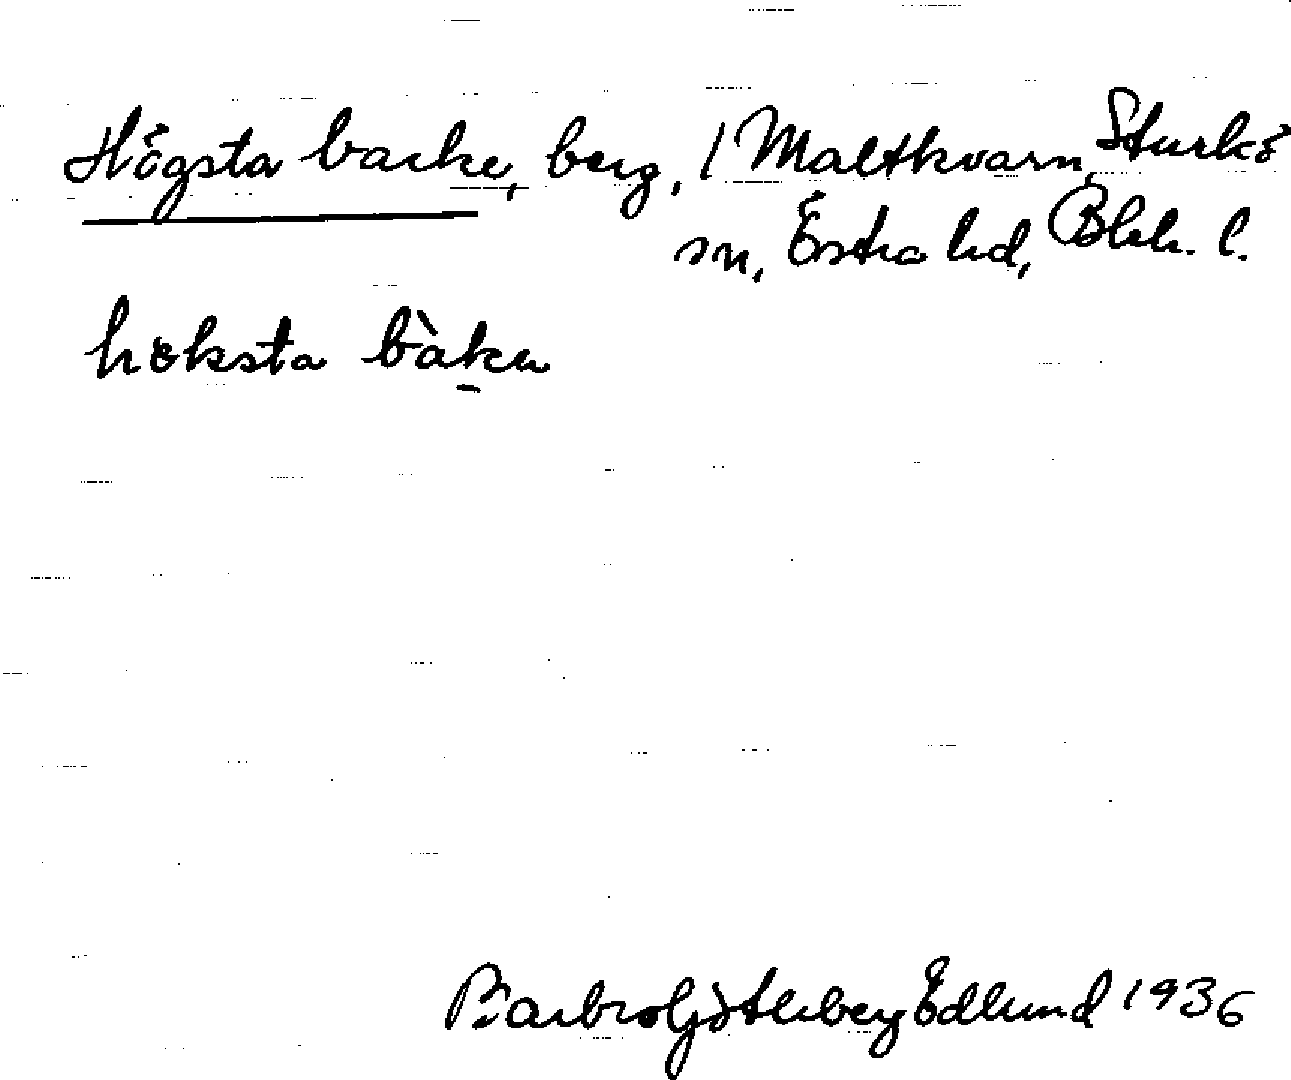 Högsta backe, berg, / Maltkvarn, Sturkö
sn, Östra hd, Blek. l.
höksta bàka
Barbro Götleberg Edlund 1936